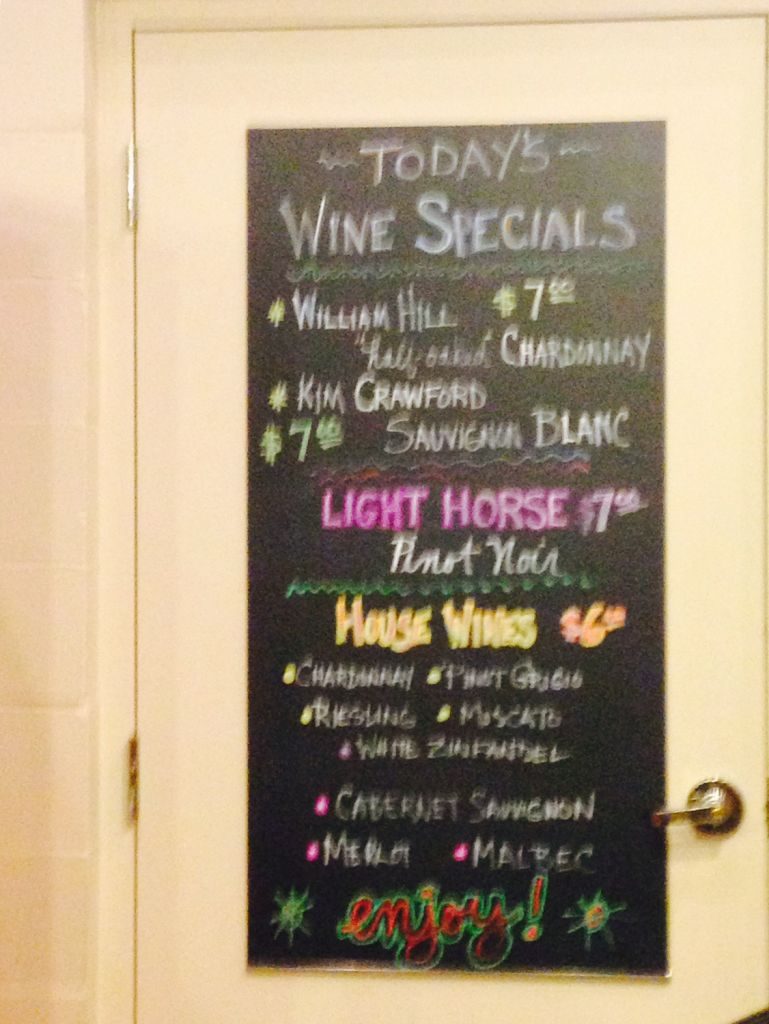 ~ TODAY'S ~
WINE SPECIALS
* WILLIAM HILL $7.00
"half-oaked" CHARDONNAY
* KIM CRAWFORD
$7.00 SAUVIGNON BLANC
LIGHT HORSE $7.00
Pinot Noir
HOUSE WINES $6.00
• CHARDONNAY • PINOT GRIGIO
• RIESLING • MOSCATO
• WHITE ZINFANDEL
• CABERNET SAUVIGNON
• MERLOT • MALBEC
enjoy!